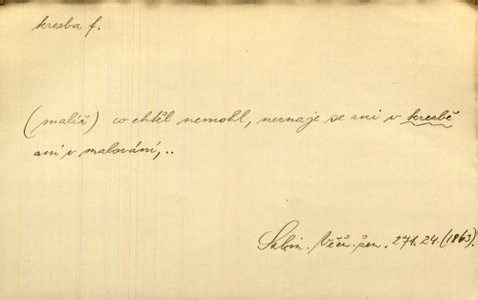 kresba f.
(malíř) co chtěl nemohl, neznaje se ani v kresbě
ani v malování,..
Sabin. Věčn. žen. 271.24.(1863).